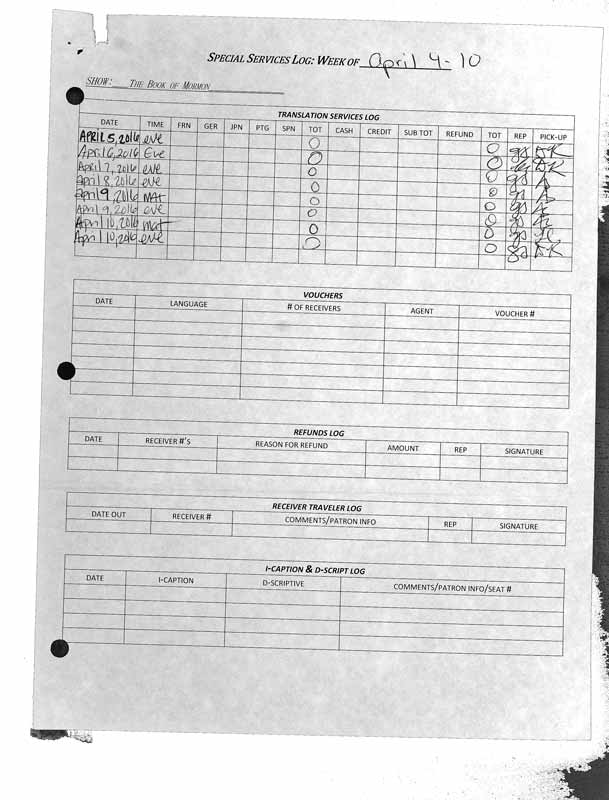 SPECIAL SERVICES LOG: WEEK OF April 4-10
SHOW: THE BOOK OF MORMON
TRANSLATION SERVICES LOG
DATE TIME FRN GER JPN PTG SPN TOT CASH CREDIT SUB TOT REFUND TOT REP PICK-UP
APRIL 5, 2016 eve 0 0 gs DK
April 6, 2016 Eve 0 0 DK
April 7, 2016 eve 0 0 gs
April 8, 2016 eve 0 0 gs
April 9, 2016 MAt 0 0 gs
April 9, 2016 eve 0 0 gs
April 10, 2016 mat 0 0 gs
April 10, 2016 eve 0 0 gs DK
VOUCHERS
DATE LANGUAGE # OF RECEIVERS AGENT VOUCHER #
REFUNDS LOG
DATE RECEIVER #'S REASON FOR REFUND AMOUNT REP SIGNATURE
RECEIVER TRAVELER LOG
DATE OUT RECEIVER # COMMENTS/PATRON INFO REP SIGNATURE
I-CAPTION & D-SCRIPT LOG
DATE I-CAPTION D-SCRIPTIVE COMMENTS/PATRON INFO/SEAT #